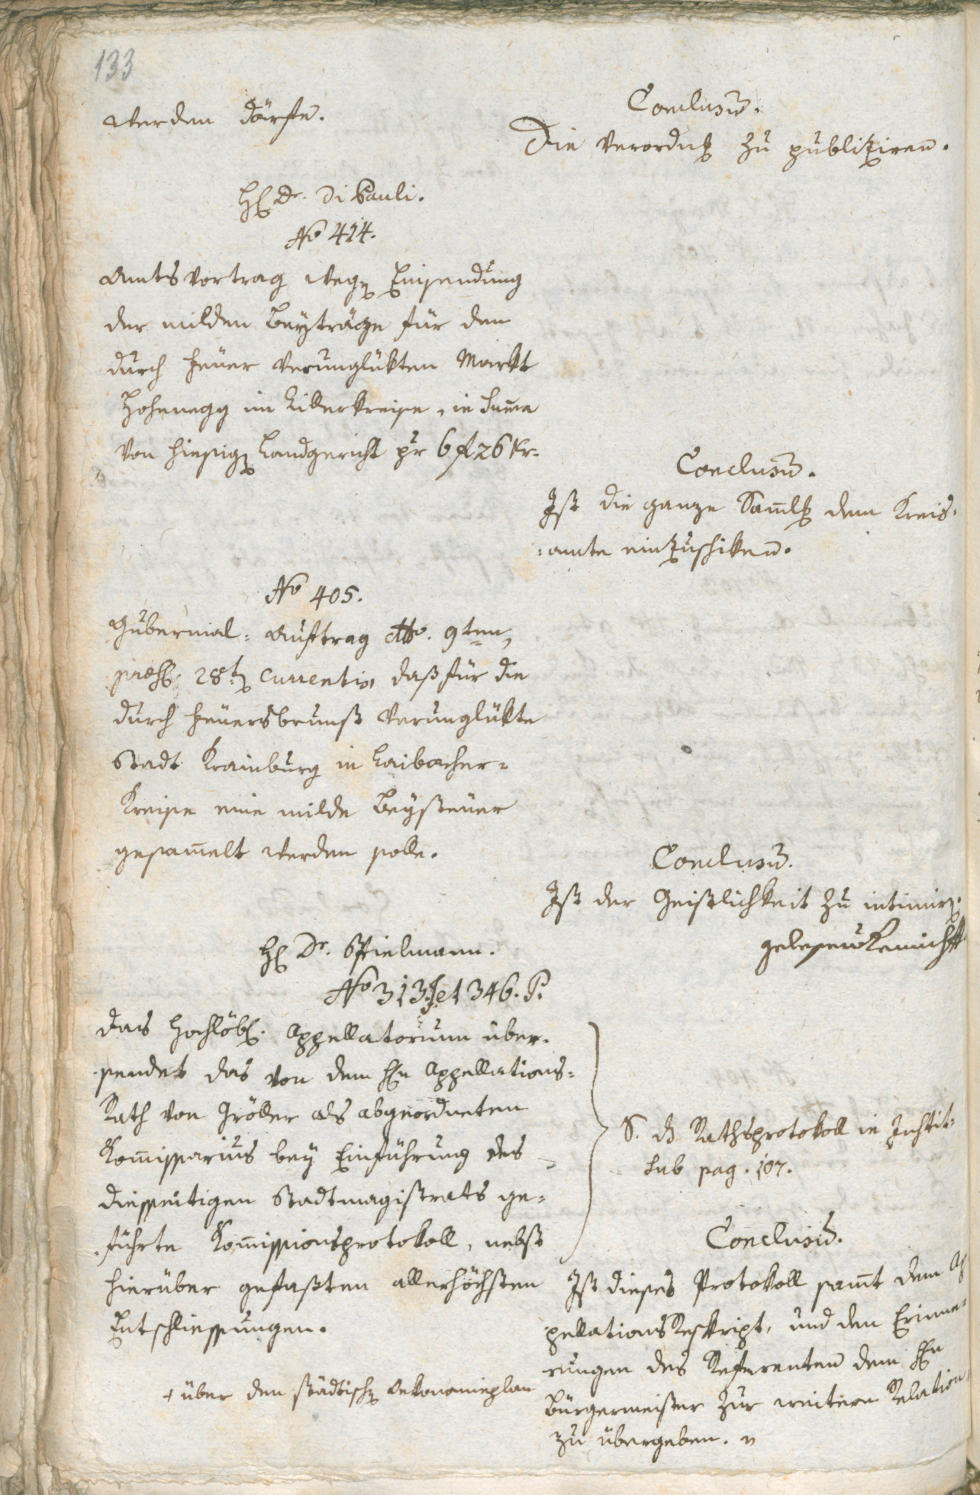 133
werden dörfte.
Conclusum.
Die Verordng zu publiziren.
H. Dr. Di Pauli.
No 414.
Amtsvortrag wegen Einsendung
der milden Beyträge für den
durch Feuer verunglükten Markt
Hohenegg im Zillerkreise, in Summa
von hiesigen Landgericht pr 6 f 26 kr.
Conclusum.
Ist die ganze Samlg dem Kreis-
amte einzuschiken.
No 405.
Gubernial-Auftrag dtto. 9ten,
praes. 28ten currentis, daß für die
durch Feuersbrunst verunglükte
Stadt Krainburg in Laibacher-
Kreise eine milde Beysteuer
gesamelt werden solle.
Conclusum.
Ist der Geistlichkeit zu intimiren.
H. Dr. Spielmann.
No 313 et 346. P.
Das Hochlöbl. Appellatorium über-
sendet das von dem Hn Appellations-
Rath von Gröller als abgeordneten
Komissarius bey Einführung des
diesseitigen Stadtmagistrats ge-
führte Komissionsprotokoll, nebst
hierüber gefaßten allerhöchsten
Entschliessungen.
+ über den städtischen Oekonomieplan
S. das Rathsprotokoll in Justit:
sub pag. 107.
Conclusum.
Ist dieses Protokoll samt dem Ap
pellationsReskript, und den Erinne-
rungen des Referenten dem Hn
Bürgermeister zur weitern Relation
zu übergeben.